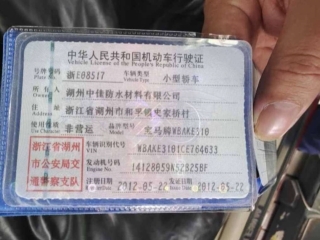 中华人民共和国机动车行驶证
Vehicle License of the People's Republic of China
号牌号码 浙E08517 车辆类型 小型轿车
Plate No. Vehicle Type
所有人 湖州中佳防水材料有限公司
Owner
住址 浙江省湖州市和孚镇史家桥村
Address
使用性质 非营运 品牌型号 宝马牌WBAKE310
Use Character Model
浙江省湖州
市公安局交
通警察支队
车辆识别代号 WBAKE3101CE764633
VIN
发动机号码
Engine No.
注册日期 2012-05-22 2012-05-22